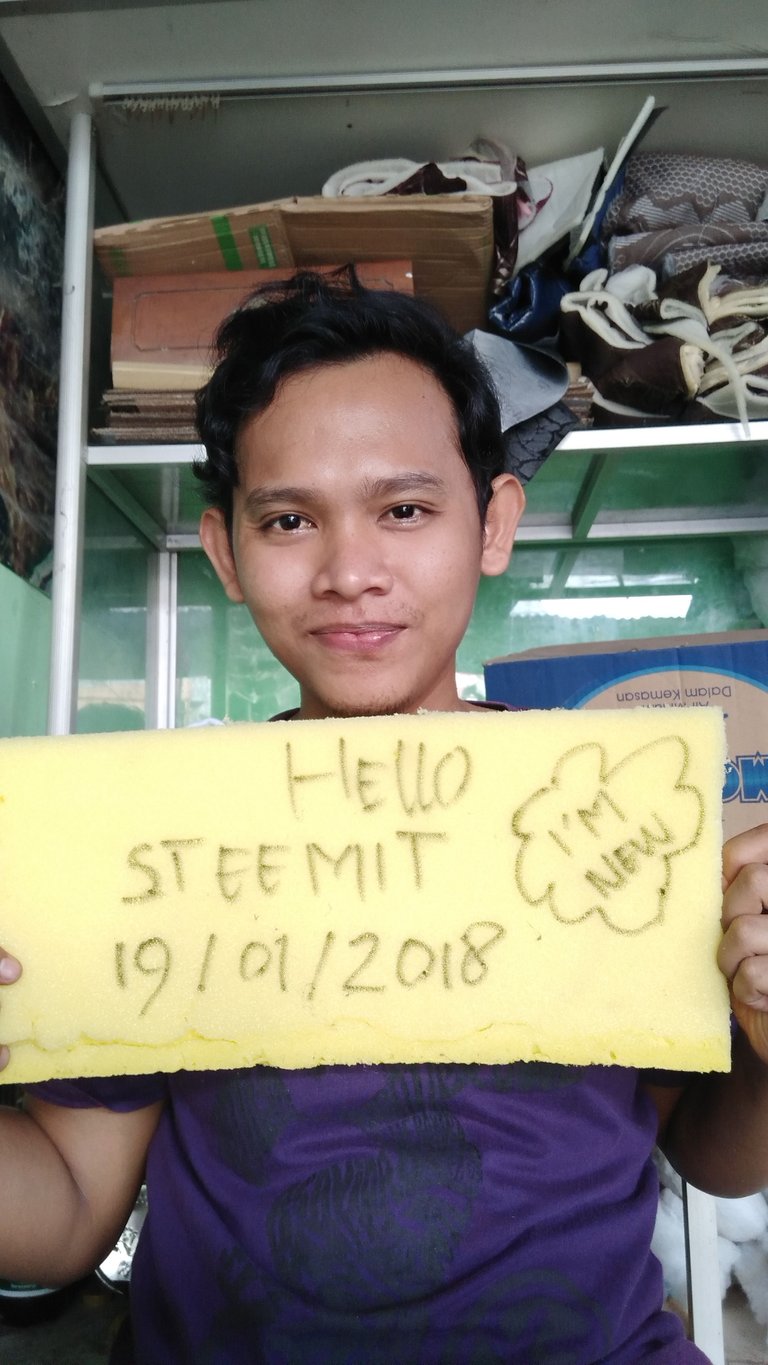 HELLO
STEEMIT
19/01/2018
I'M
NEW
Dalam Kemasan